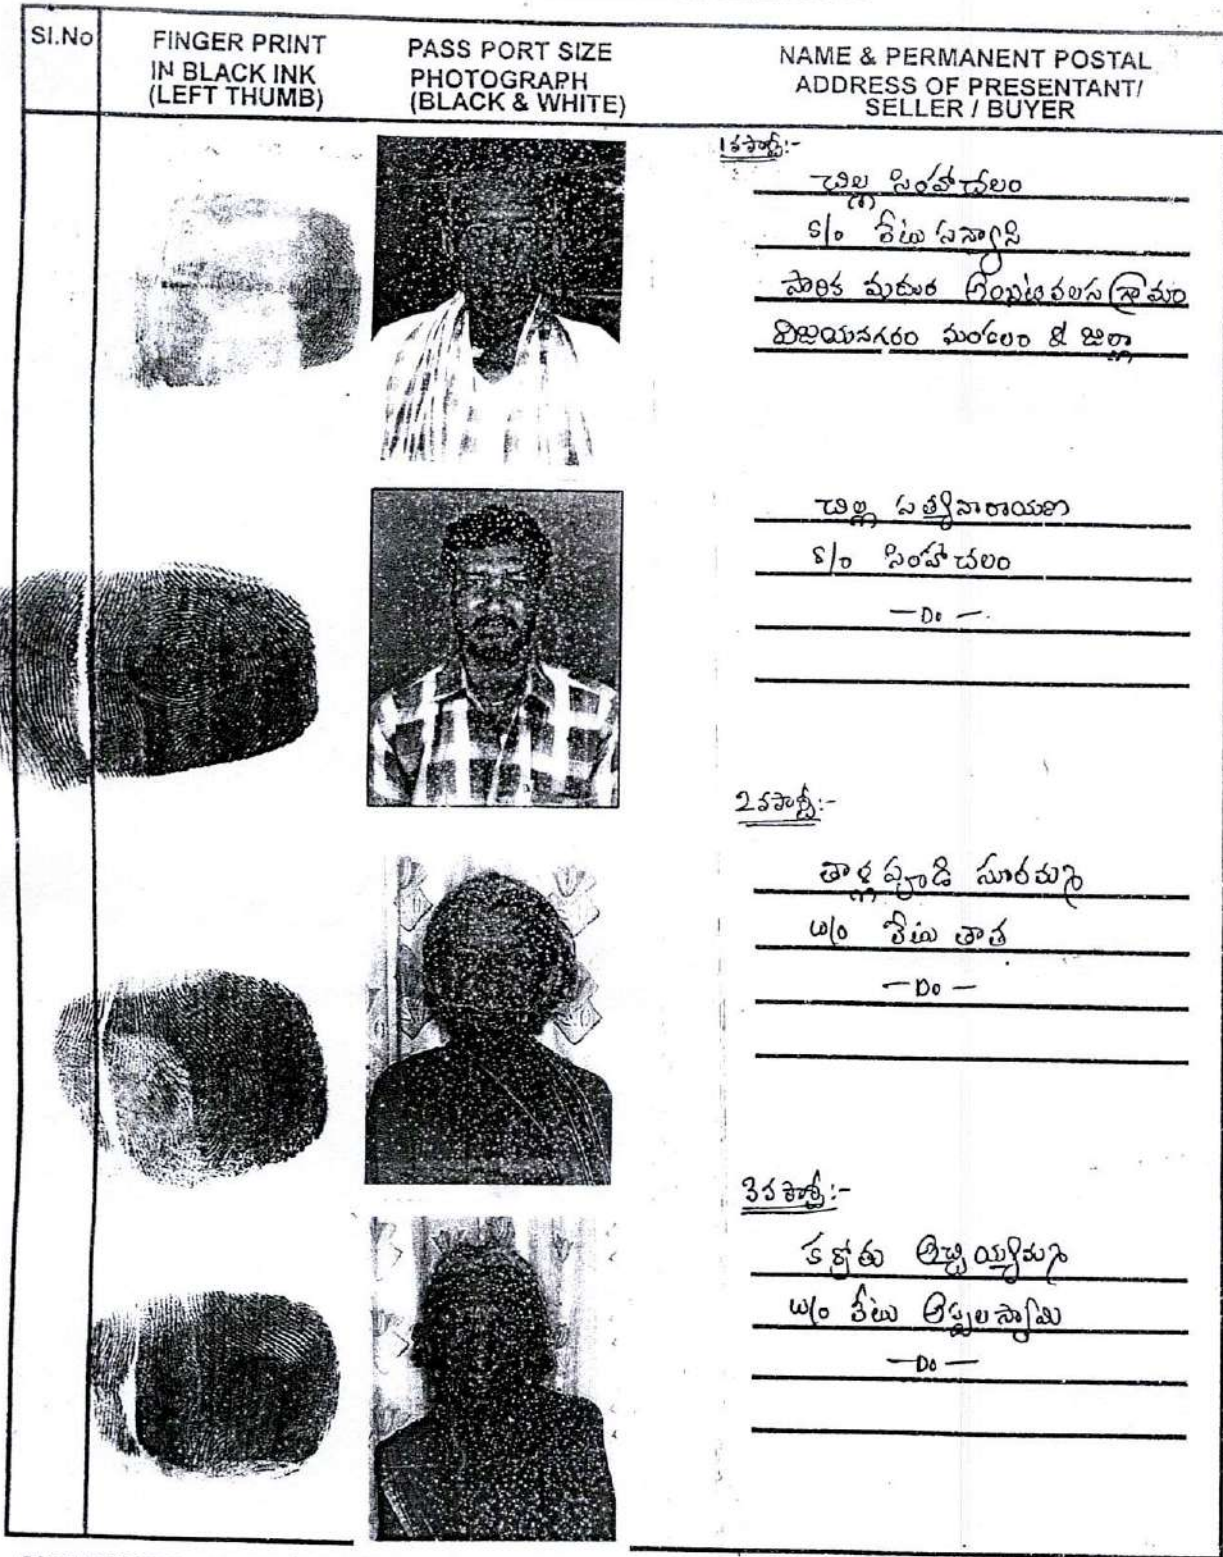 Sl.No
FINGER PRINT
IN BLACK INK
(LEFT THUMB)
PASS PORT SIZE
PHOTOGRAPH
(BLACK & WHITE)
NAME & PERMANENT POSTAL
ADDRESS OF PRESENTANT/
SELLER / BUYER
1వ పార్టీ:-
చిల్ల సింహాచలం
S/o లేటు సన్యాసి
సారిక మదుర అంబటివలస గ్రామం
విజయనగరం మండలం & జిల్లా
చిల్ల సత్యనారాయణ
S/o సింహాచలం
— Do —
2వ పార్టీ:-
తాళ్లపూడి సూరమ్మ
W/o లేటు తాత
— Do —
3వ పార్టీ:-
కర్రోతు అచ్చియ్యమ్మ
W/o లేటు అప్పలస్వామి
— Do —